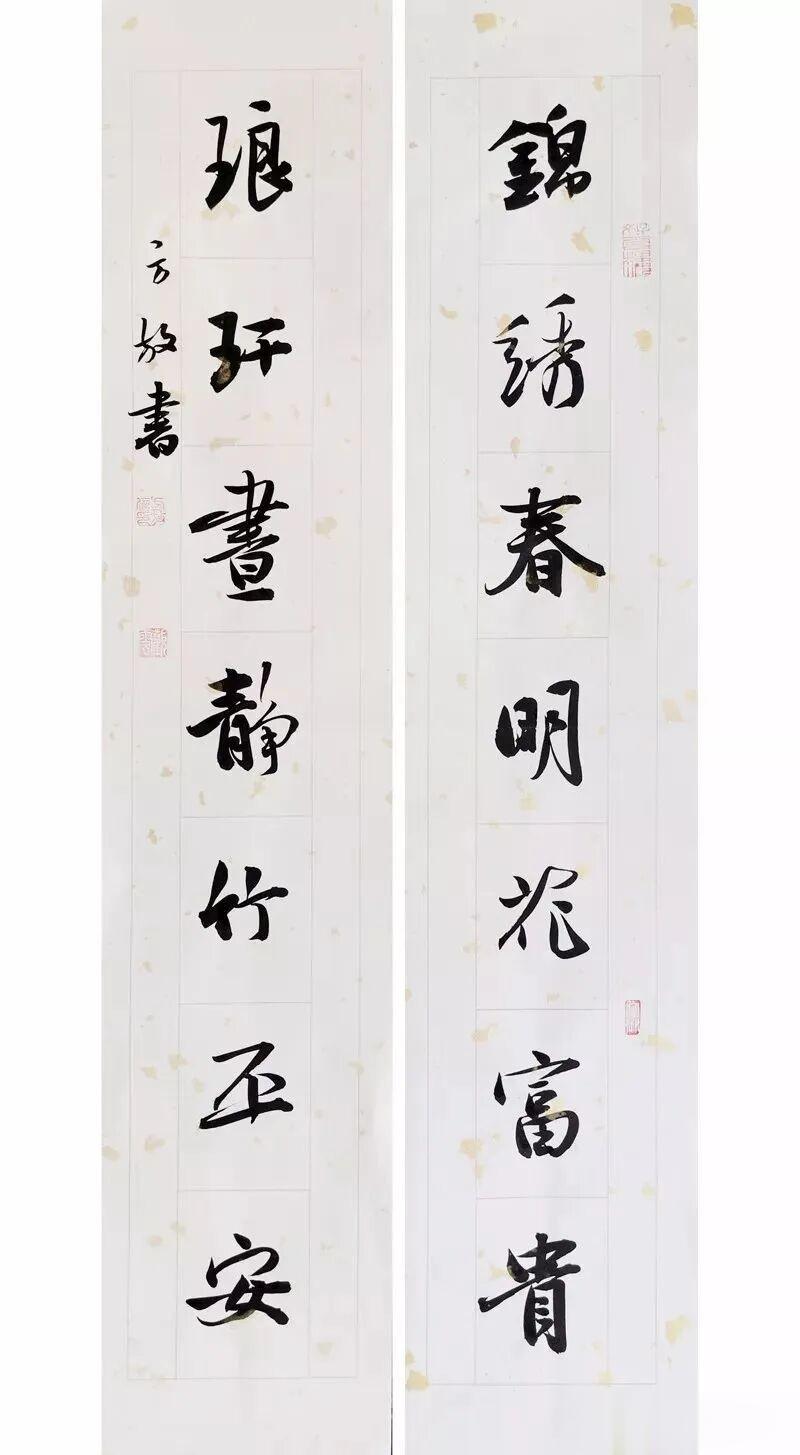 錦綉春明花富貴
琅玕晝靜竹平安
方放書